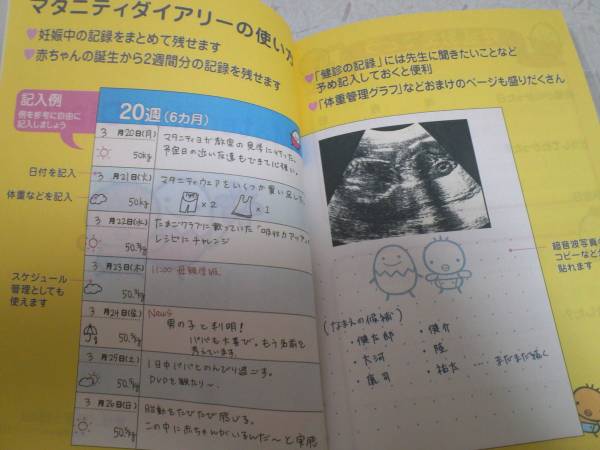 マタニティダイアリーの使い方
♥妊娠中の記録をまとめて残せます
♥赤ちゃんの誕生から2週間分の記録を残せます
記入例
例を参考に自由に
記入しましょう
日付を記入
体重などを記入
スケジュール
管理としても
使えます
20週(6カ月)
3 月20日(月)
50kg
マタニティヨガ教室の見学に行った。
予定日の近い友達もできて心強い。
3 月21日(火)
50kg
マタニティウェアをいくつか買い足した。
×2 ×1
3 月22日(水)
たまごクラブに載っていた「吸収力アップ
レシピにチャレンジ
3 月23日(木)
11:00 母親学級
3 月24日(金)
News
男の子と判明!
パパも大喜び。もう名前を
考えています。
3 月25日(土)
1日中パパとのんびり過ごす。
DVDを観たり〜
3 月26日(日)
胎動をたびたび感じる。
この中に赤ちゃんがいるんだ〜と実感
♥「健診の記録」には先生に聞きたいことなど
予め記入しておくと便利
♥「体重管理グラフ」などおまけのページも盛りだくさん
超音波写真の
コピーなど
貼れます
(なまえの候補)
・健太郎
・健介
・大河
・陸
・祐太 …. まだまだ続く